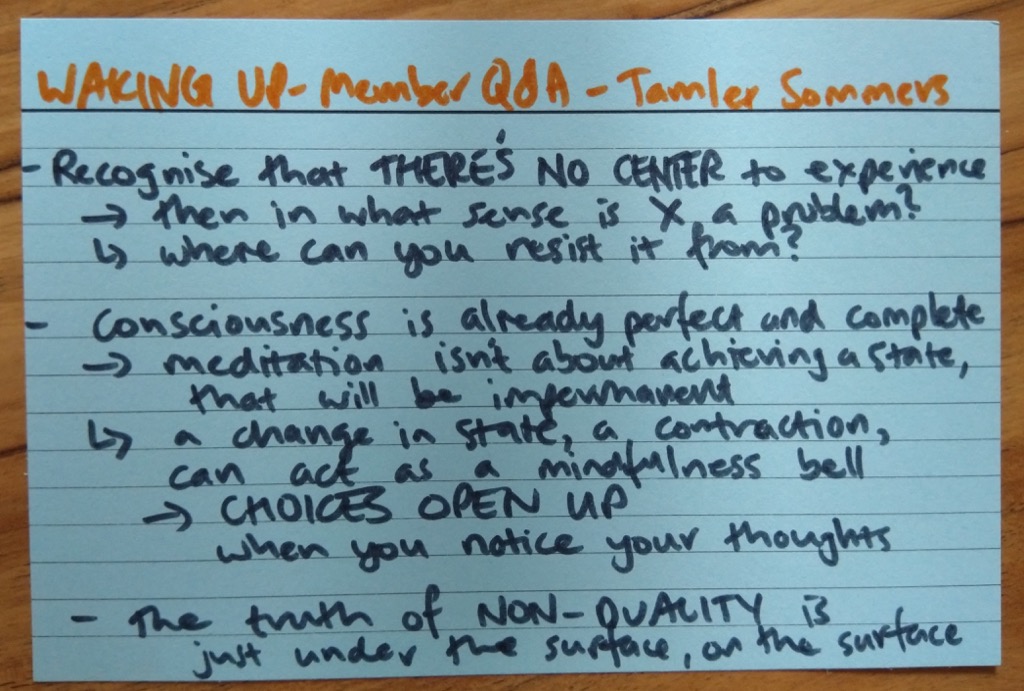 WAKING UP - Member Q&A - Tamler Sommers
- Recognise that THERE'S NO CENTER to experience
→ then in what sense is X a problem?
↳ where can you resist it from?
- Consciousness is already perfect and complete
→ meditation isn't about achieving a state,
that will be impermanent
↳ a change in state, a contraction,
can act as a mindfulness bell
→ CHOICES OPEN UP
when you notice your thoughts
- The truth of NON-DUALITY is
just under the surface, on the surface